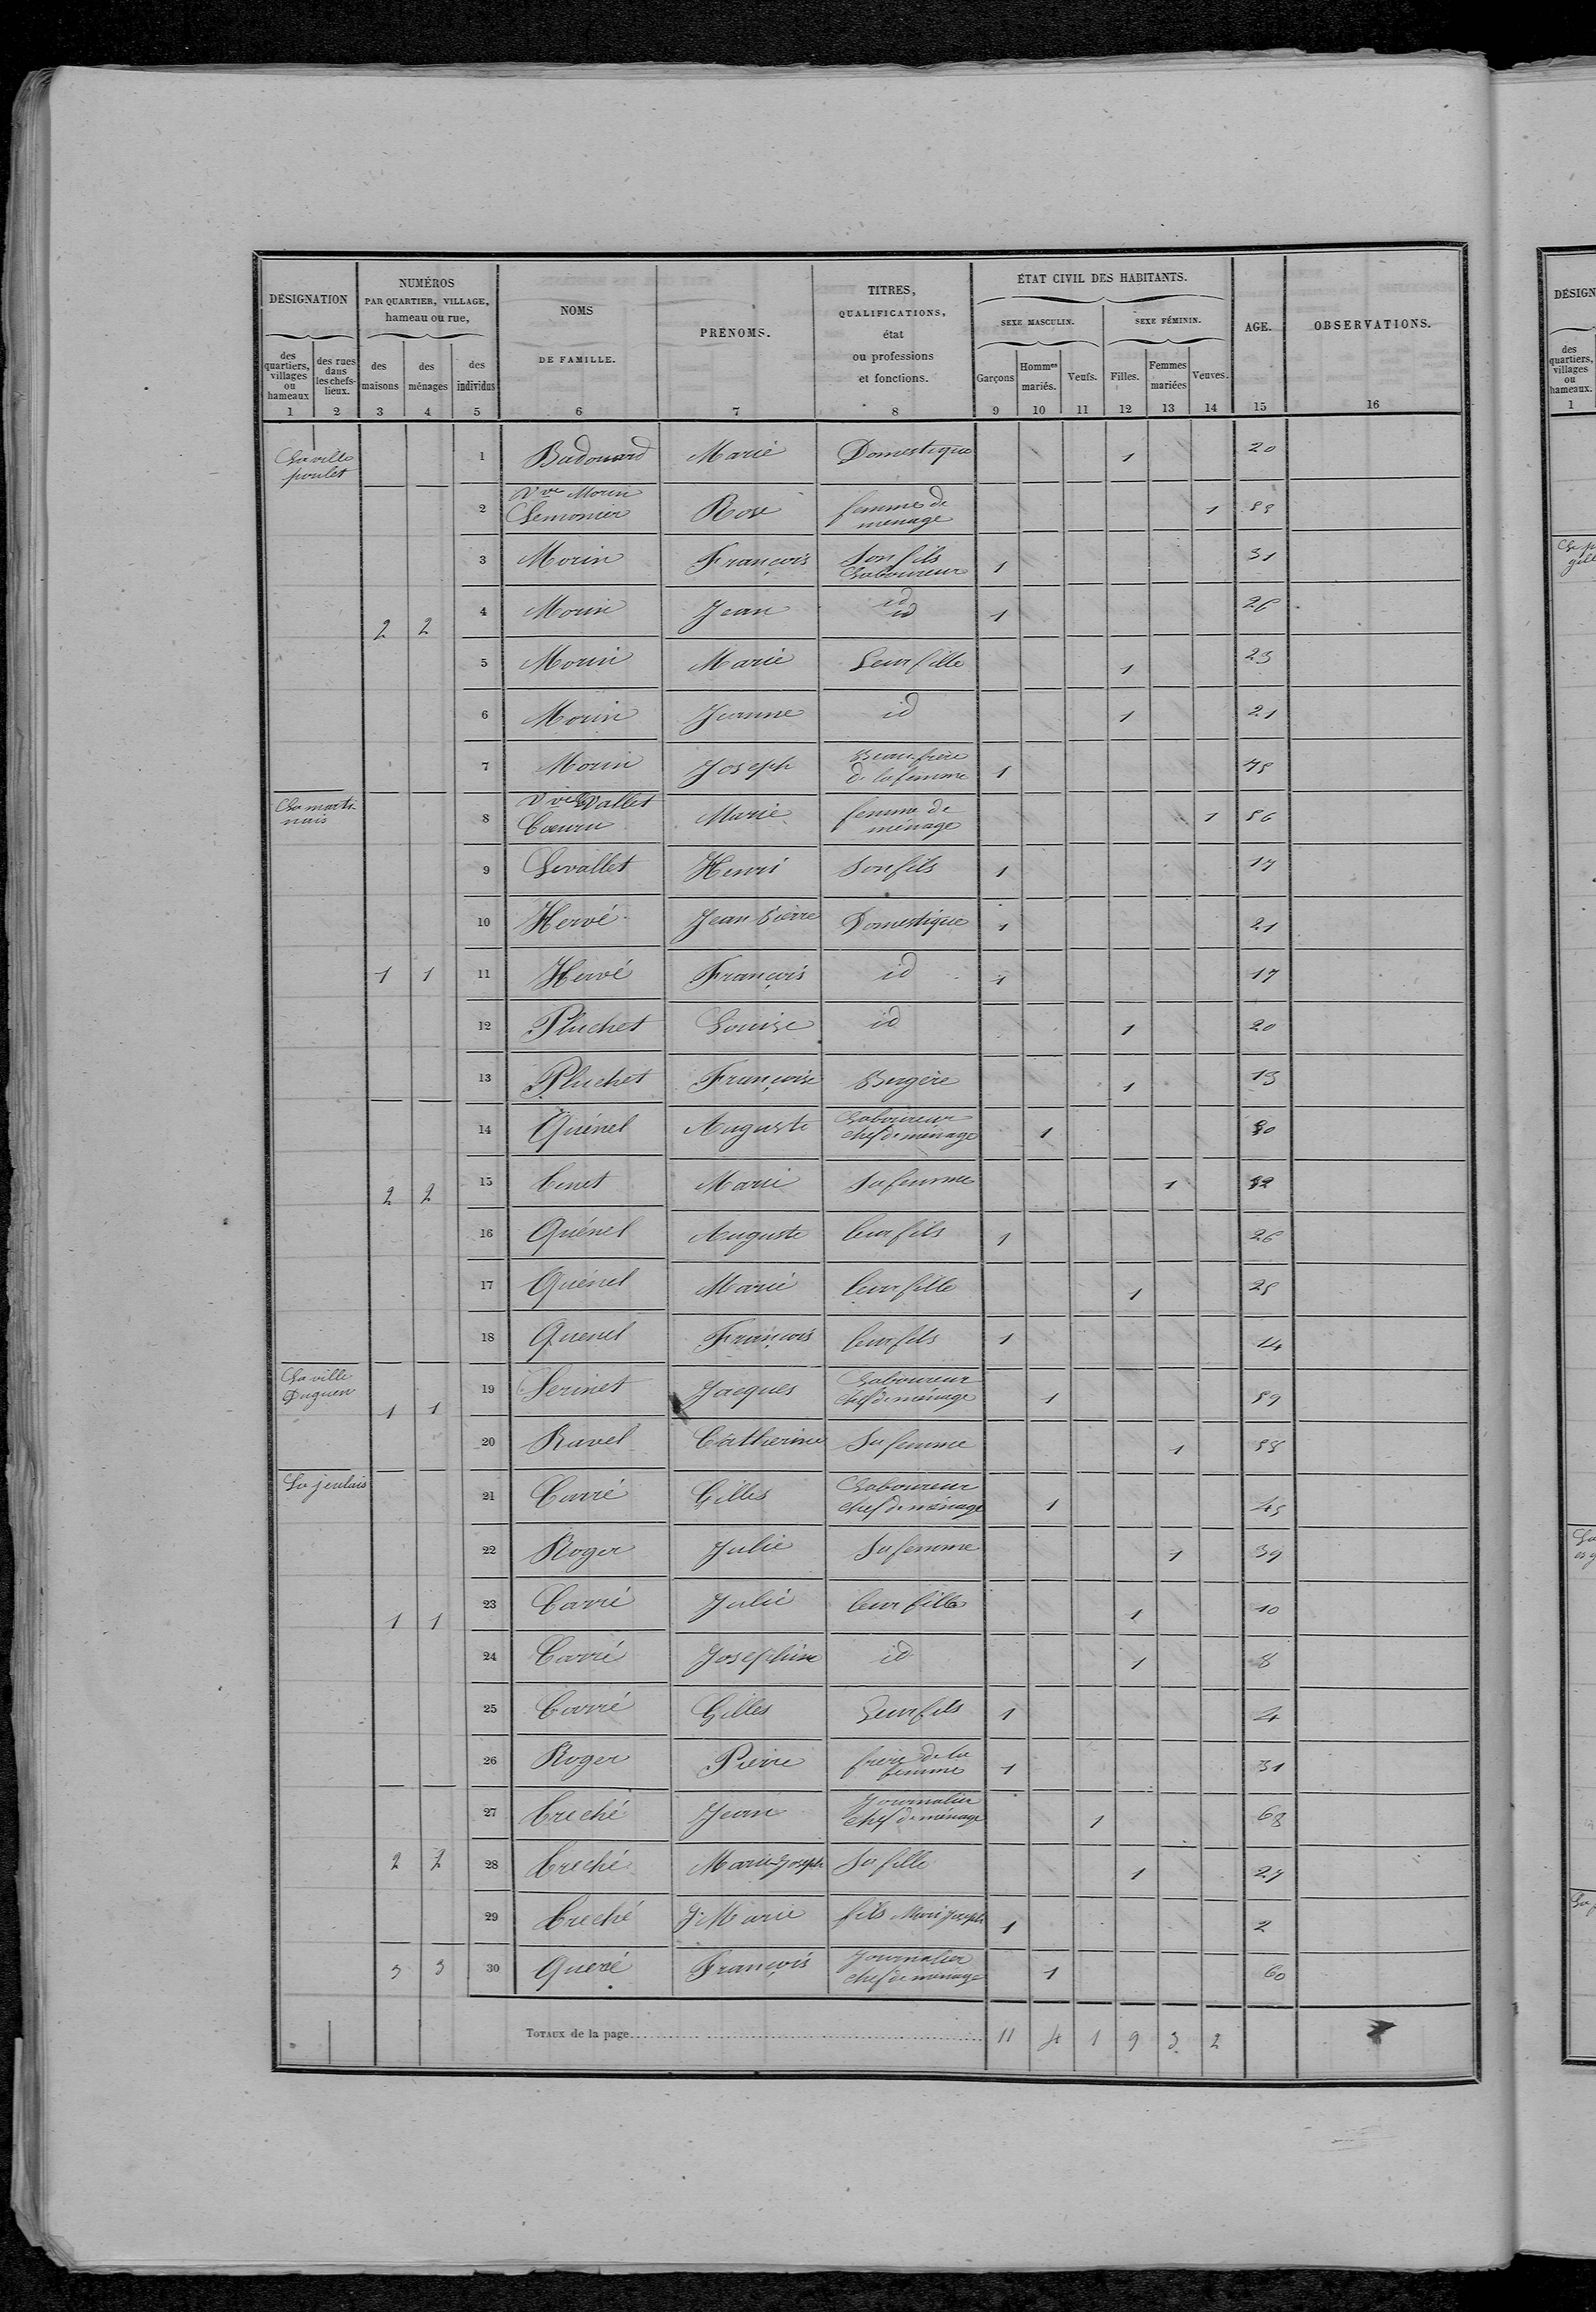 DÉSIGNATION
NUMÉROS
PAR QUARTIER, VILLAGE,
hameau ou rue,
NOMS
DE FAMILLE.
PRÉNOMS.
TITRES,
QUALIFICATIONS,
état
ou professions
et fonctions.
ÉTAT CIVIL DES HABITANTS.
SEXE MASCULIN.
SEXE FÉMININ.
AGE.
OBSERVATIONS.
des quartiers, villages ou hameaux
des rues dans les chefs-lieux.
des maisons
des ménages
des individus
Garçons
Hommes mariés.
Veufs.
Filles.
Femmes mariées
Veuves.
1 2 3 4 5 6 7 8 9 10 11 12 13 14 15 16
La ville poulet
1 Badouard Marie Domestique 1 20
2 Vve Morin Lemonier Rose femme de menage 1 55
3 Morin François Son fils Laboureur 1 31
2 2 4 Morin Jean id id 1 26
5 Morin Marie Leur fille 1 23
6 Morin Jeanne id 1 21
7 Morin Joseph Beau frère de la femme 1 75
La marti nais
8 Marie femme de ménage 1 56
9 Levallet Henri Son fils 1 17
10 Hervé Jean Pierre Domestique 1 21
1 1 11 Hervé François id 1 17
12 Pluchet Louise id 1 20
13 Pluchet Françoise Bergère 1 13
14 Quénel Auguste Laboureur chef de ménage 1 50
2 2 15 Marie Sa femme 1 52
16 Quénel Auguste leur fils 1 26
17 Quénel Marie leur fille 1 25
18 Quenel François leur fils 1 14
La ville Duguen
1 1 19 Serinet Jacques Laboureur chef de ménage 1 59
20 Ravel Catherine Sa femme 1 55
La jeulais
21 Carré Gilles Laboureur chef de ménage 1 45
22 Roger Julie Sa femme 1 39
1 1 23 Carré Julie leur fille 1 10
24 Carré Josephine id 1 8
25 Carré Gilles Leur fils 1 4
26 Roger Pierre frère de la femme 1 31
27 Creché Jean Journalier chef de ménage 1 68
2 2 28 Creché Marie Joseph Sa fille 1 27
29 Creché J. Marie fils Marie Joseph 1 2
3 3 30 Queré François Journalier chef de menage 1 60
TOTAUX de la page 11 4 1 9 3 2
DÉSIGN
des quartiers, villages ou hameaux.
1